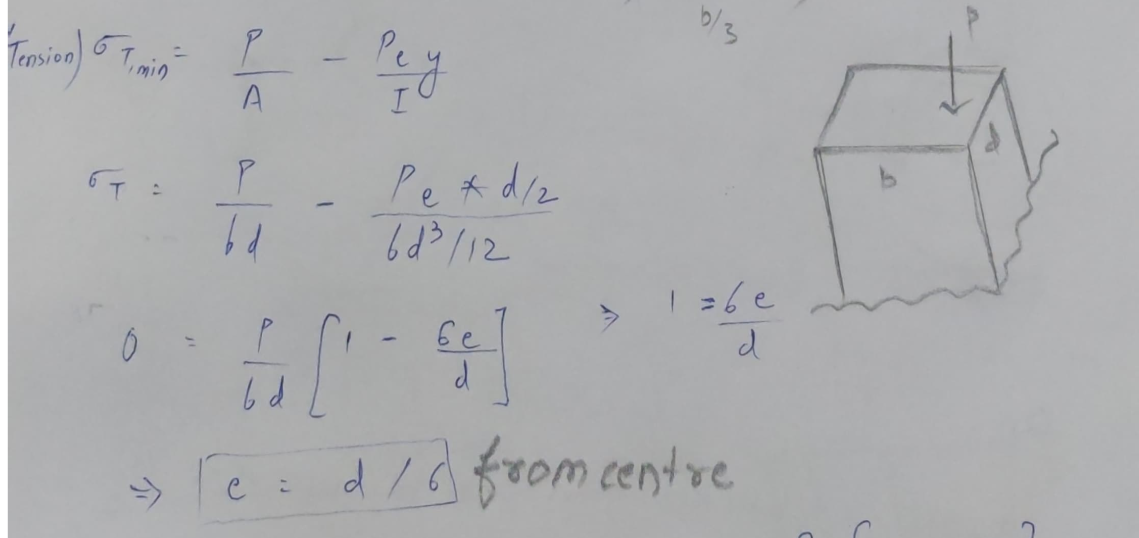 b/3
P
Tension) σT,min = P/A - Pe y/I
b
d
σT = P/bd - Pe * d/2 / bd³/12
0 = P/bd [1 - 6e/d] ⇒ 1 = 6e/d
⇒ e = d/6 from centre